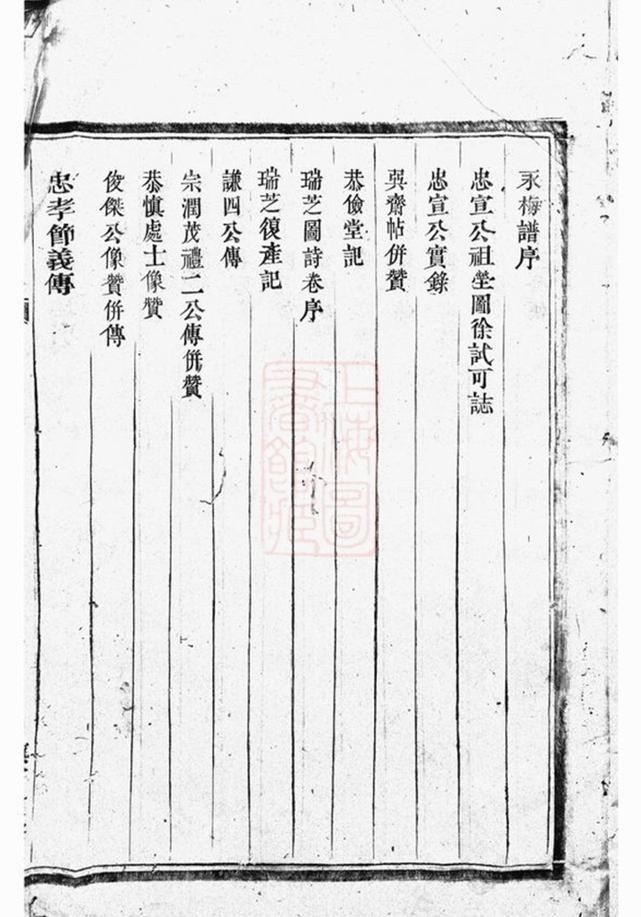 永梅譜序
忠宣公祖塋圖徐試可誌
忠宣公實錄
吳齋帖併贊
恭儉堂記
瑞芝圖詩卷序
瑞芝復產記
謙四公傳
宗潤茂禮二公傳併贊
恭慎處士像贊
俊傑公像贊併傳
忠孝節義傳
上海圖書館藏